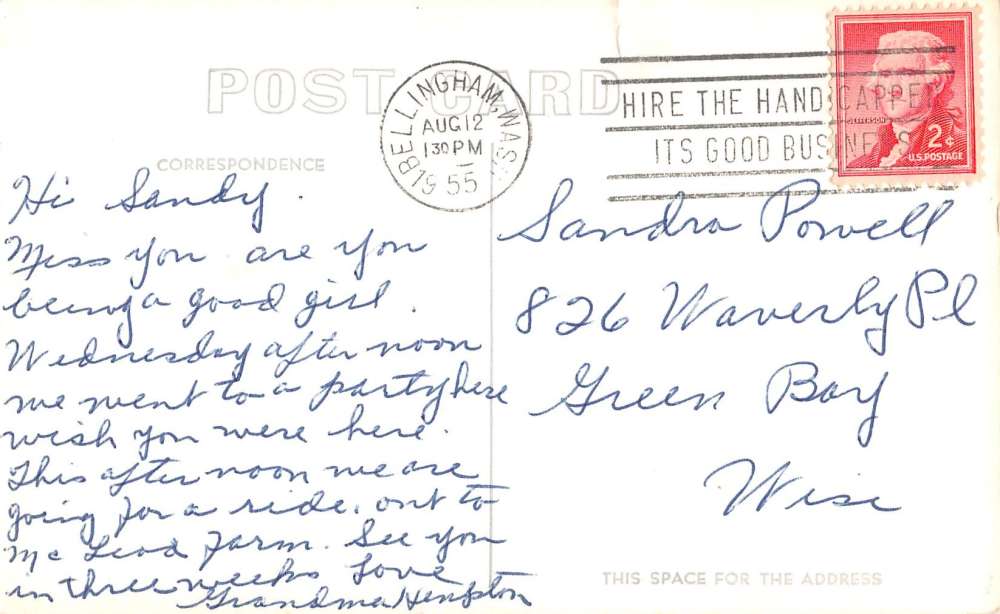 POST CARD
BELLINGHAM, WASH.
AUG 12
1 30 PM
55
HIRE THE HANDICAPPED
ITS GOOD BUSINESS
JEFFERSON
2¢
U.S. POSTAGE
CORRESPONDENCE
Hi Sandy.
Miss you are you
being a good girl.
Wednesday after noon
we went to a party here
wish you were here.
This after noon we are
going for a ride, out to
Mc Leod Farm. See you
in three weeks Love
Grandma
Sandra Powell
826 Waverly Pl
Green Bay
Wisc
THIS SPACE FOR THE ADDRESS